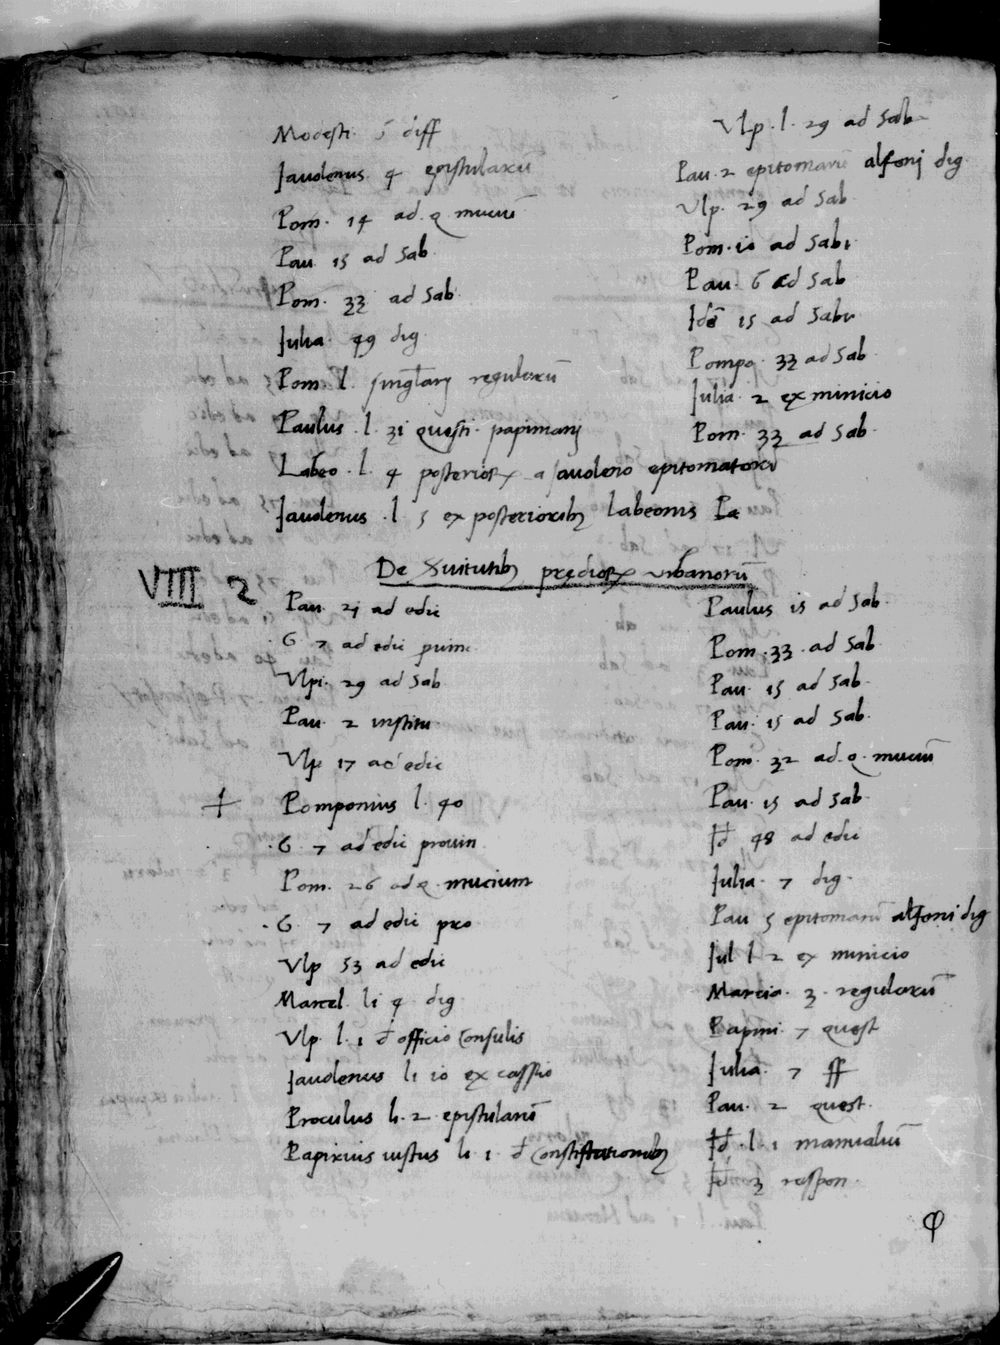 Modesti. 5 diff
Iavolenus 4 epistularū
Pom. 14 ad. q muciū
Pau. 15 ad Sab.
Pom. 33 ad Sab.
Iulia. 49 dig.
Pom. l. singlarꝫ regularū
Paulus. l. 31 questi. papiniani
Labeo. l. 4 posterioꝝ a Javoleno epitomatorū
Iavolenus. l. 5 ex posterioribꝫ labeonis
Ulp. l. 29 ad Sab.
Pau. 2 epitomarū alfenj dig.
Ulp. 29 ad Sab.
Pom. 10 ad Sabi
Pau. 6 ad Sab
Idē 15 ad Sabi
Pompo. 33 ad Sab.
Iulia. 2 ex minicio
Pom. 33 ad Sab.
VIII 2 De Suitutibꝫ prędioꝝ urbanorū
Pau. 21 ad edic
G 7 ad edic
Ulpi. 29 ad Sab
Pau. 2 institu
Ulp 17 ad edic
+ Pomponius l. 40
. G. 7 ad edic provin
Pom. 26 ad q. mucium
. G 7 ad edic pro.
Ulp 53 ad edic
Marcel. li 4 dig
Ulp. l. 1 đ officio Consulis
Iavolenus li 10 ex cassio
Proculus li. 2. epistularū
Papirius iustus li 1. đ Constitutionibꝫ
Paulus 15 ad Sab.
Pom. 33. ad Sab
Pau. 15 ad Sab.
Pau. 15 ad Sab.
Pom. 32 ad. q. muciū
Pau. 15 ad Sab.
Id 48 ad edic
Iulia. 7 dig.
Pau 5 epitomarū alfeni dig
Iul l 2 ex minicio
Marcia. 3. regularū
Papini. 7 quest
Iulia. 7 ff
Pau. 2 quest.
Id. l. 1 manualiū
Id. 3 respon.
φ